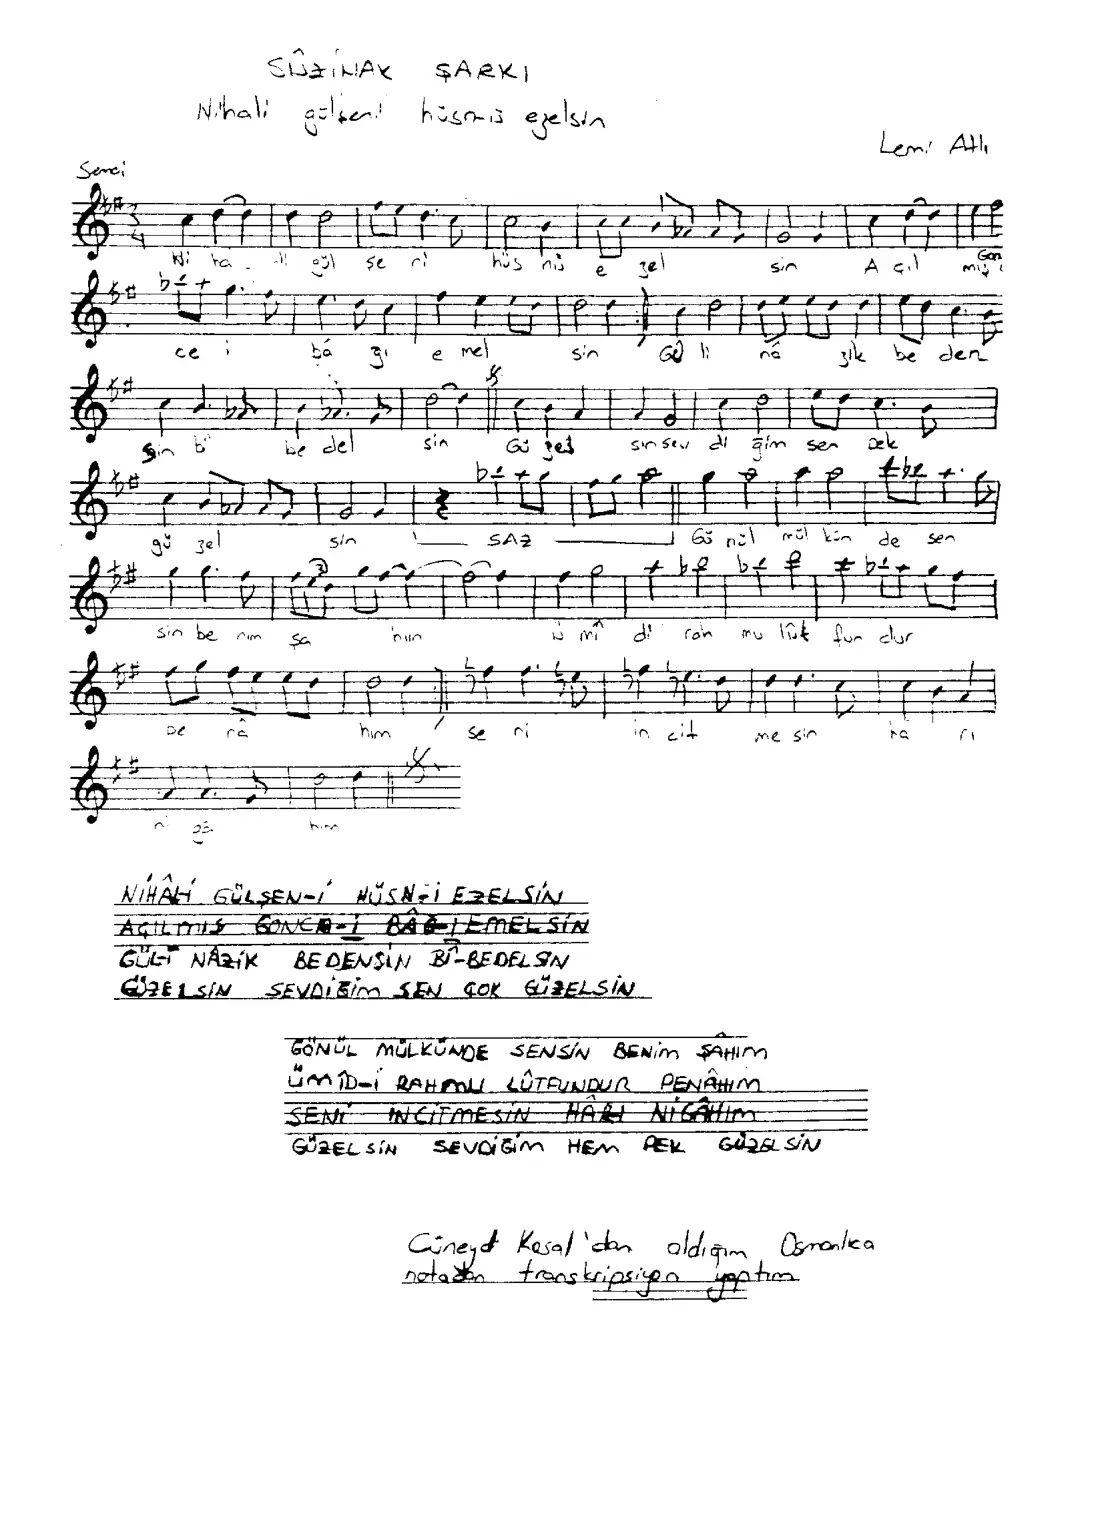 SÛZİNAK ŞARKI
Nihali gülşeni hüsnü ezelsin
Lemi Atlı
Semai
Ni ha li gül şe ni hüs nü e zel sin A çıl mış Gon
ce i bâ ğı e mel sin Gü li nâ zik be den
sin bi be del sin Gü zel sin sev di ğim sen pek
gü zel sin SAZ Gö nül mül kün de sen
sin be nim şa hım ü mî di rah mu lût fun dur
pe nâ hım se ni in cit me sin hâ rı
ni gâ hım
NİHÂL-İ GÜLŞEN-İ HÜSN-İ EZELSİN
AÇILMIŞ GONCA-İ BÂĞ-I EMELSİN
GÜL-İ NÂZİK BEDENSİN BÎ-BEDELSİN
GÜZELSİN SEVDİĞİM SEN ÇOK GÜZELSİN
GÖNÜL MÜLKÜNDE SENSİN BENİM ŞÂHIM
ÜMÎD-İ RAHMU LÛTFUNDUR PENÂHIM
SENİ İNCİTMESİN HÂRI NİGÂHIM
GÜZELSİN SEVDİĞİM HEM PEK GÜZELSİN
Cüneyd Kosal'dan aldığım Osmanlıca
notadan transkripsiyon yaptım